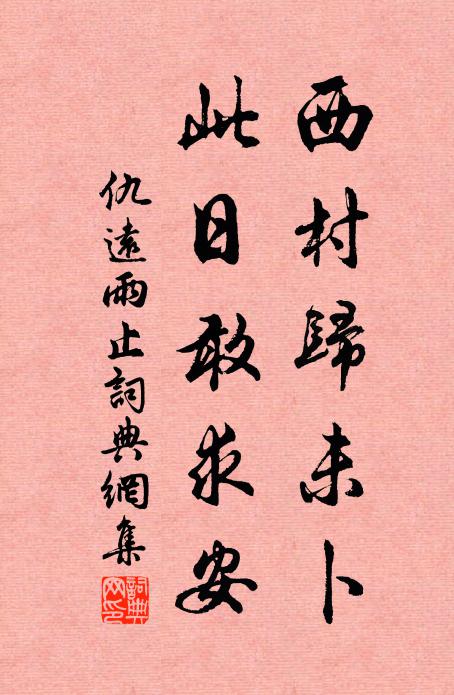 西村歸未卜
此日敢求安
仇遠雨止詞典網集
詞典網印